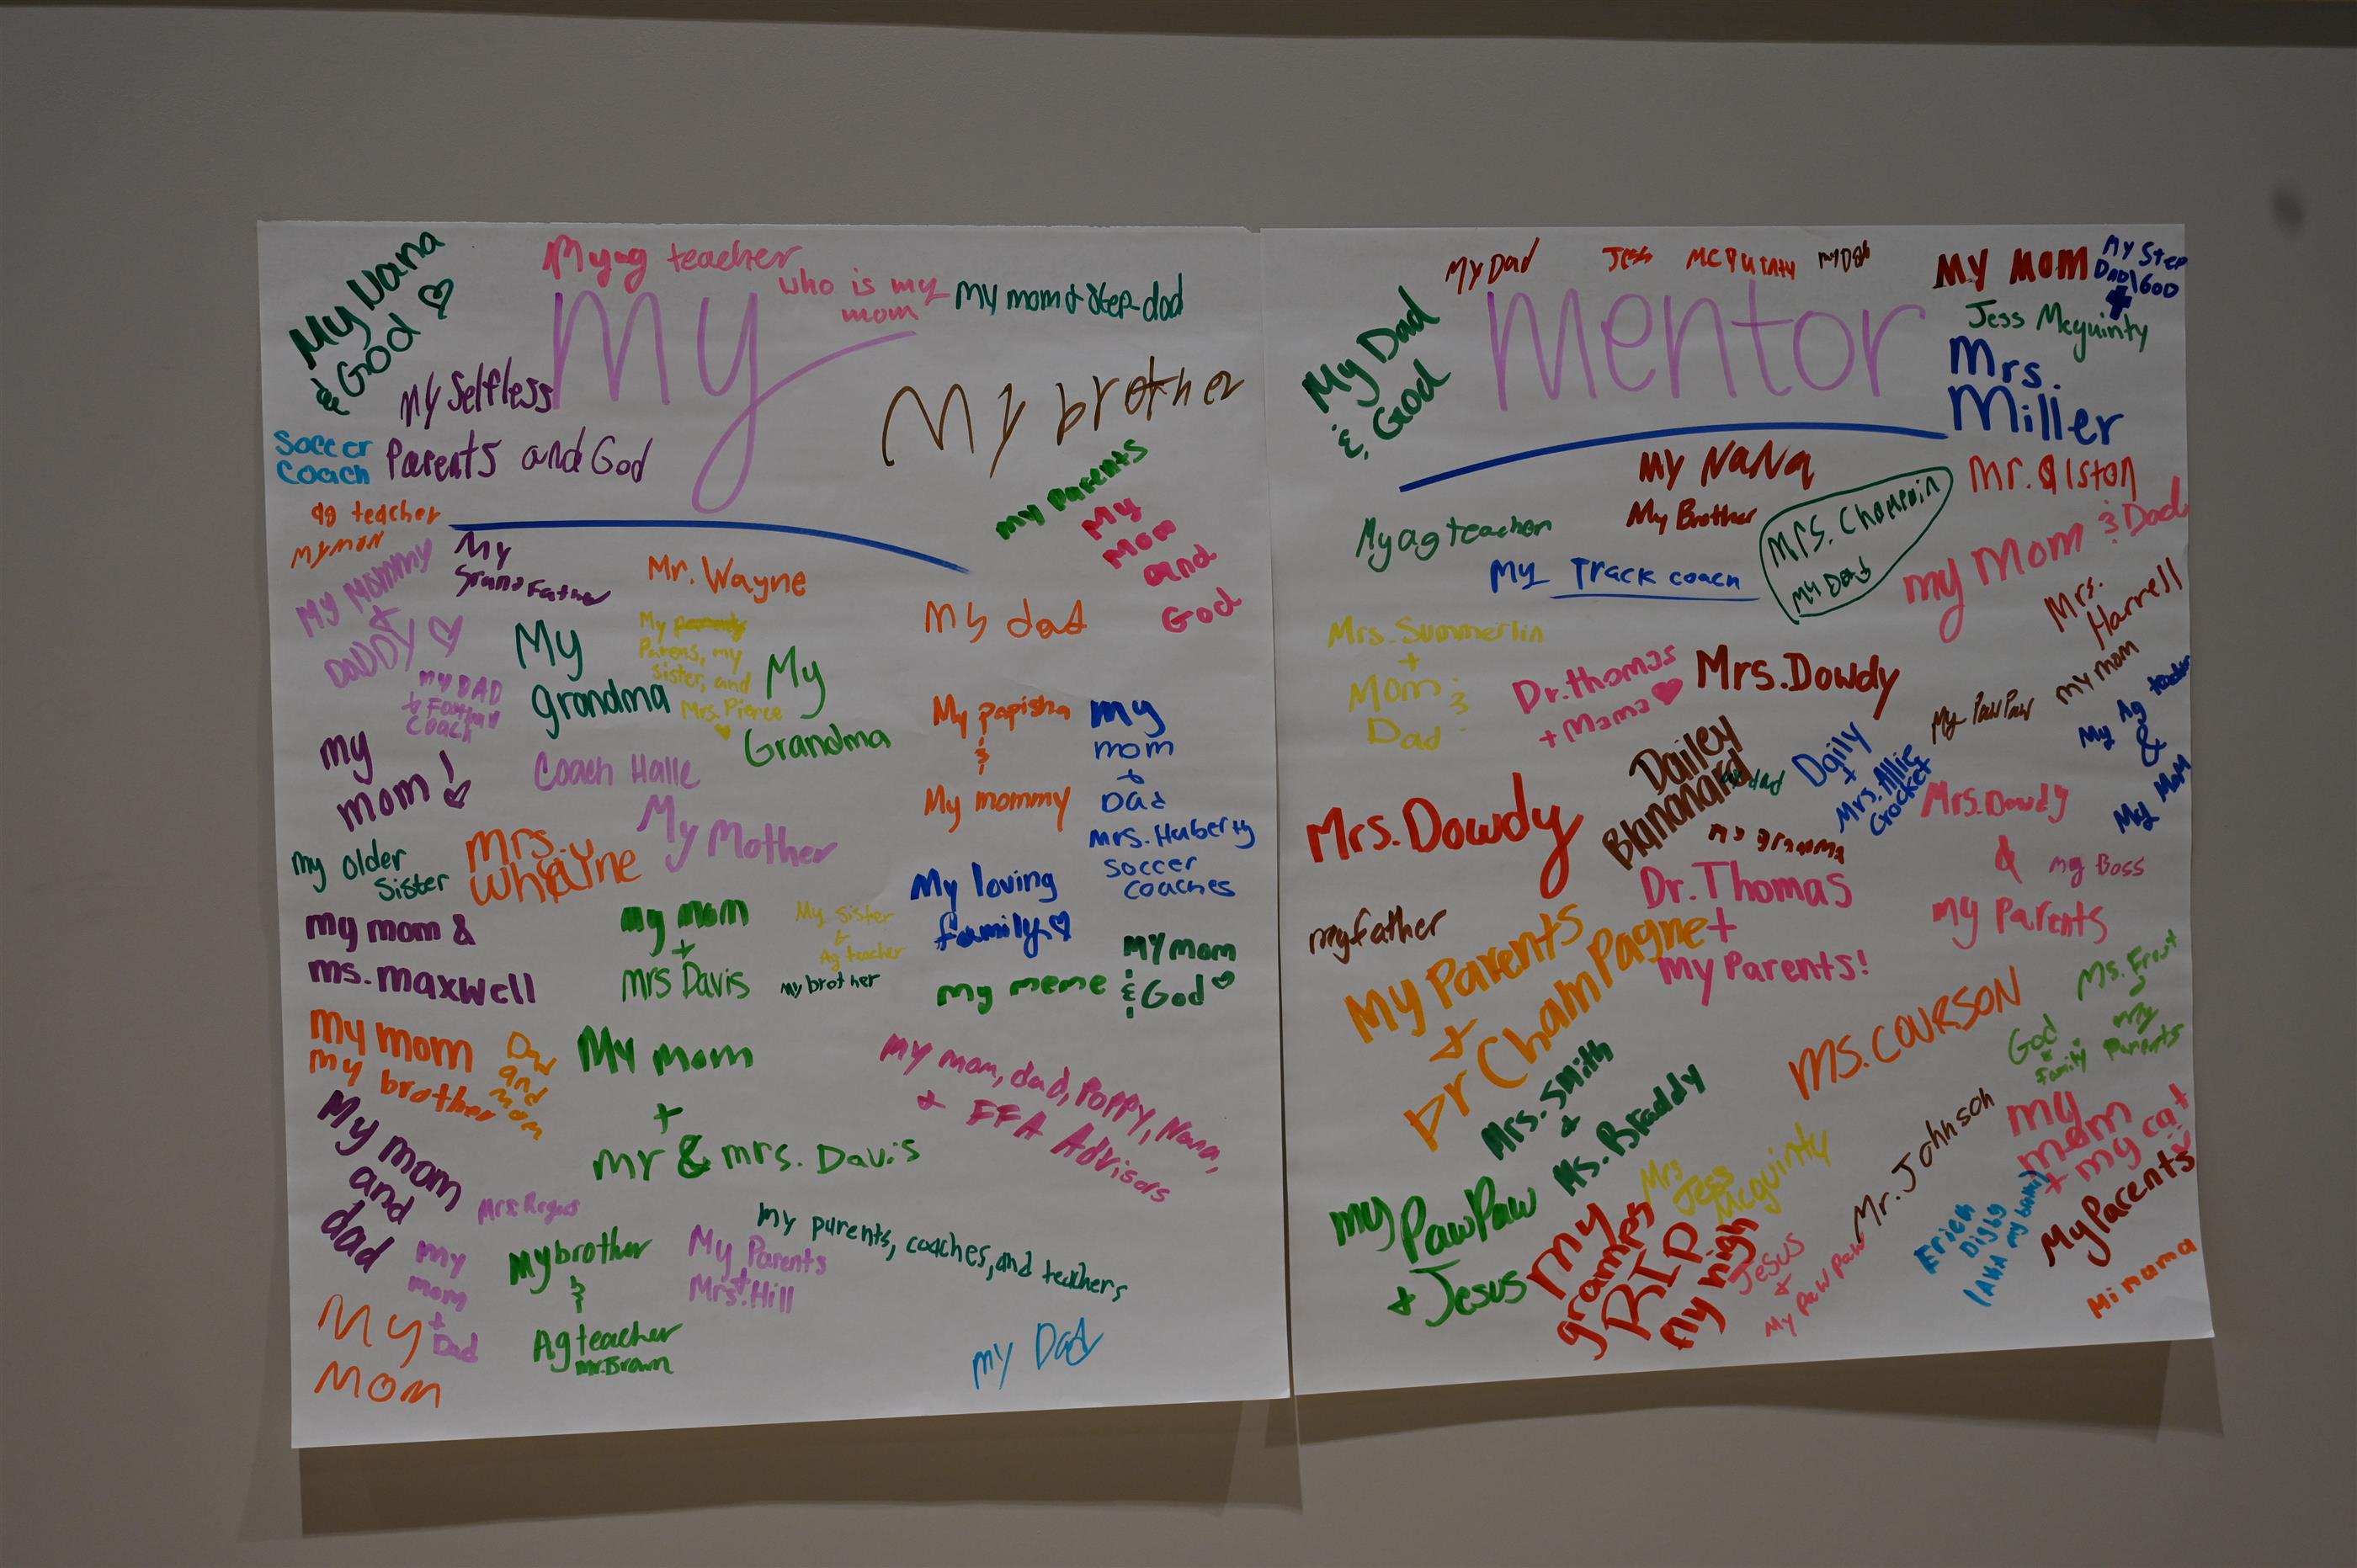 My Nana
& God
My ag teacher
who is my
mom
My mom & Step-dad
My
My Selfless
Parents and God
Soccer
Coach
My brother
ag teacher
My mom
My Mommy
+
DADDY
My
Grandfather
Mr. Wayne
My Parents
My
Mom
and
God
My dad
My DAD
& Football
Coach
My
grandma
My
Parens, my
sister, and
Mrs. Pierce
My
Grandma
My
mom!
Coach Halle
My Mother
My papisha
&
My mommy
My
mom
&
Dad
Mrs. Huberty
Soccer
coaches
My older
Sister
Mrs.
Whayne
My mom &
ms. maxwell
My mom
+
mrs Davis
My sister
&
Ag teacher
My brother
My loving
family
My meme
My mom
& God
My mom
My brother
Dad
and
mom
My mom
+
mr & mrs. Davis
My mom, dad, Poppy, Nana,
+ FFA Advisors
My mom
and
dad
My
mom
+
Dad
My brother
&
Ag teacher
Mr. Brown
My Parents
+
Mrs. Hill
My parents, coaches, and teachers
My
Mom
My Dad
My Dad
Jess McGuinty
My Dad
My Mom
My Step
Dad/God
Mentor
My Dad
& God
Jess Mcguinty
Mrs.
Miller
My Nana
My Brother
Mr. Alston
My ag teacher
My Track coach
Mrs. Champain
My Dad
My Mom & Dad
Mrs.
Harrell
Mrs. Summerlin
+
Mom &
Dad
Dr. Thomas
+ Mama
Mrs. Dowdy
My PawPaw
My mom
My Ag teacher
&
My Mom
Dailey
Blananard
dad
Daily
+
Mrs. Allie
Crocket
Mrs. Dowdy
My gramma
Mrs. Dowdy
&
My Parents
My Boss
My father
My Parents
+
Dr Champagne
Dr. Thomas
+
My Parents!
Ms. Courson
Ms. Frost
&
My
Parents
God
&
family
Mrs. Smith
&
Ms. Braddy
My PawPaw
+ Jesus
Mrs
Jess
Mcguinty
My
grannies
RIP
My nigh
Jesus
+
My paw paw
Mr. Johnson
My
mom
+ my cat
Erick
Digby
(AKA my brother)
My Parents
Minama